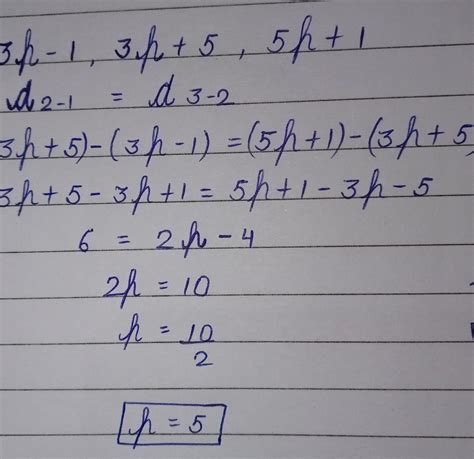 3p-1, 3p+5, 5p+1
d 2-1 = d 3-2
3p+5)-(3p-1)=(5p+1)-(3p+5
3p+5-3p+1=5p+1-3p-5
6 = 2p-4
2p = 10
p = 10/2
p = 5